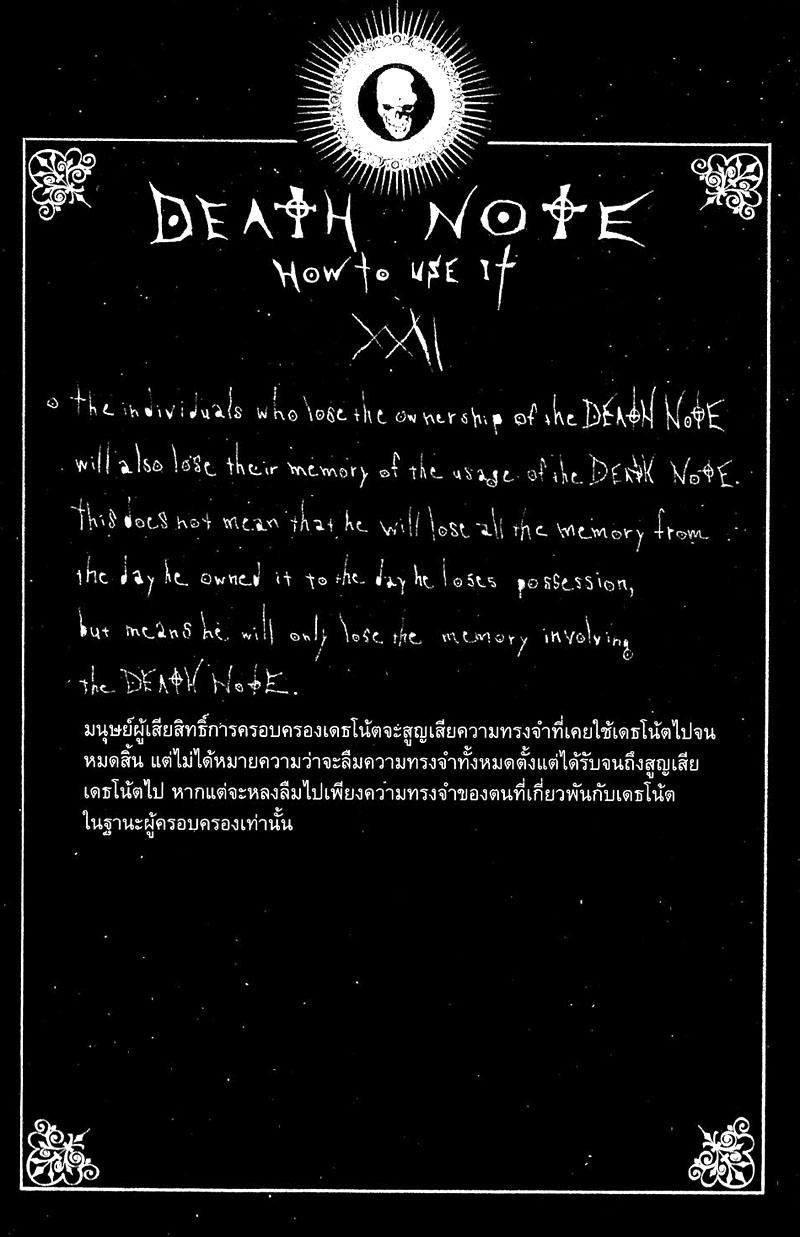 DEATH NOTE
HOW to USE It
XXII
the individuals who lose the ownership of the DEATH NOTE
will also lose their memory of the usage of the DEATH NOTE.
This does not mean that he will lose all the memory from
the day he owned it to the day he loses possession,
but means he will only lose the memory involving
the DEATH NOTE.
มนุษย์ผู้เสียสิทธิ์การครอบครองเดธโน้ตจะสูญเสียความทรงจำที่เคยใช้เดธโน้ตไปจน
หมดสิ้น แต่ไม่ได้หมายความว่าจะลืมความทรงจำทั้งหมดตั้งแต่ได้รับจนถึงสูญเสีย
เดธโน้ตไป หากแต่จะหลงลืมไปเพียงความทรงจำของตนที่เกี่ยวพันกับเดธโน้ต
ในฐานะผู้ครอบครองเท่านั้น